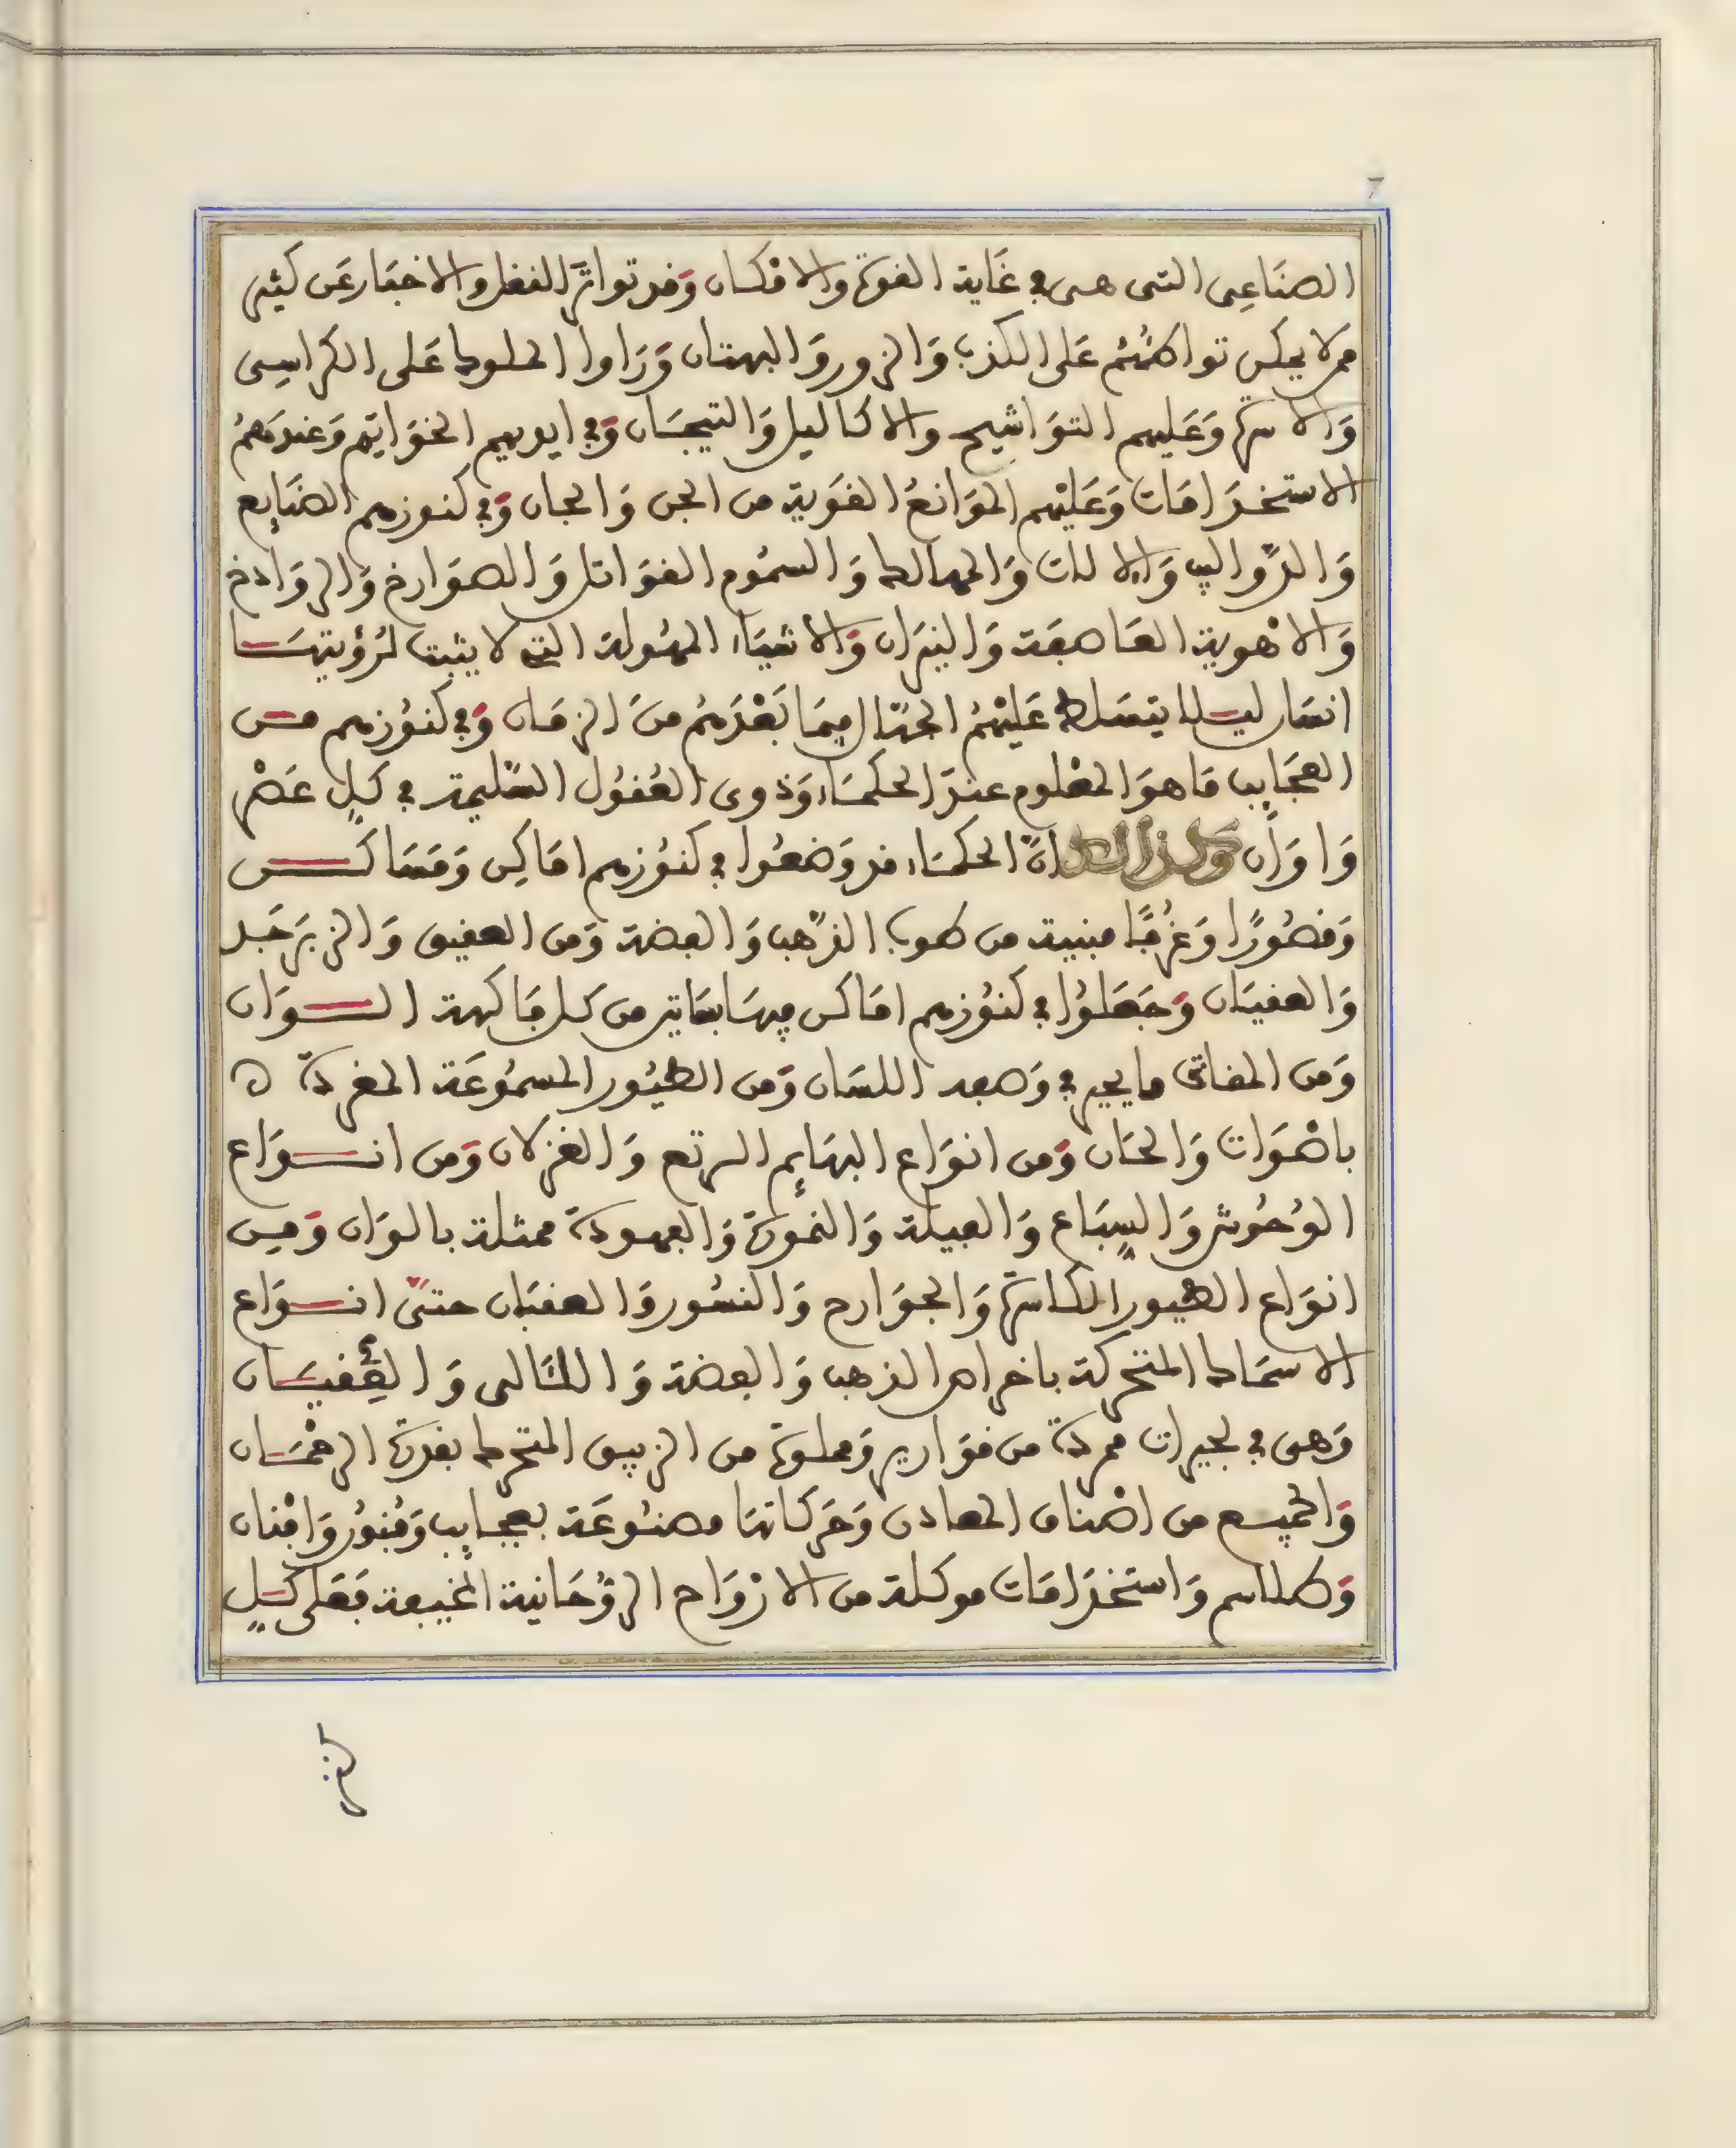 7
الصناعى التى هى في غَاية القوة والامكان وَقد تواترَ النقل والاخبَار عَن كثير
ممن لا يمكن تواطئهُم عَلى الكذب وَالزور وَالبهتان وَرَاوا الملوك عَلى الكراسِى
وَالاسرة وَعَليهم التوَاشيح والاكاليل وَالتيجَان وَفي ايديهم الخوَاتِم وَعندَهمُ
الاستخدَامَات وَعَليْهم الموَانعُ القوَية من الجن وَالجان وَفي كنوزهم الصنَايع
وَالدّواليب وَالالات وَالمهالك وَالسمُوم القوَاتل وَالصوَارخ وَالروَادخ
وَالاهْوية العَاصفَة وَالنيرَان وَالاشيَاء المهُولة التى لا يثبت لرُؤيتهَا
انسَان ليلا يتسَلط عَليْهُم الجهّال فيمَا بَعْدَهُم منَ الزمَان وَفي كنُوزهم من
العجَايب مَا هوَ المعْلوم عندَ الحكمَاء وَذوى العُقُول السَّليمة في كلِ عَصْر
وَاوَان انَّ الحكمَاء قد وَضعُوا في كنُوزهم امَاكِن وَمَسَاكن
وَقصُورًا وَغرُفًا مبنية من طوب الذّهب وَالفضة وَمن العقيق وَالزبرَجَد
وَالعقيَان وَجَعَلوُا في كنُوزهم امَاكن فيهَا بسَاتين من كل فَاكهة الوَان
وَمن المقاثى ما يحير في وَصفه اللسَان وَمن الطيُور المسمُوعَة المغردة ه
باصْوَات وَالحَان وَمن انوَاع البهَايم الرتع وَالغزلان وَمن انوَاع
الوُحُوش وَالسِبَاع وَالفيلة وَالنمورة وَالفهودة ممثلة بالوَان وَمِن
انوَاع الطيور الكاسرة وَالجوَارح وَالنسُور وَالعقبَان حتىّ انوَاع
الاسمَاك المتحركة باخراص الذهب وَالفضة وَاللئَالى وَالعِقيَان
وَهى في بحيرات ممردة من قوَارير وَمملوة من الزيبق المتحرك بقدرة الرحْمَان
وَالجميع من اصْناف المعادن وَحَركاتهَا مصنُوعَة بعجايب وَفنُون وَافْنان
وَطلاسم وَاستخدَامَات موكلة من الارْوَاح الروُحَانية المخيفة فَعَلى كلِ
كنز